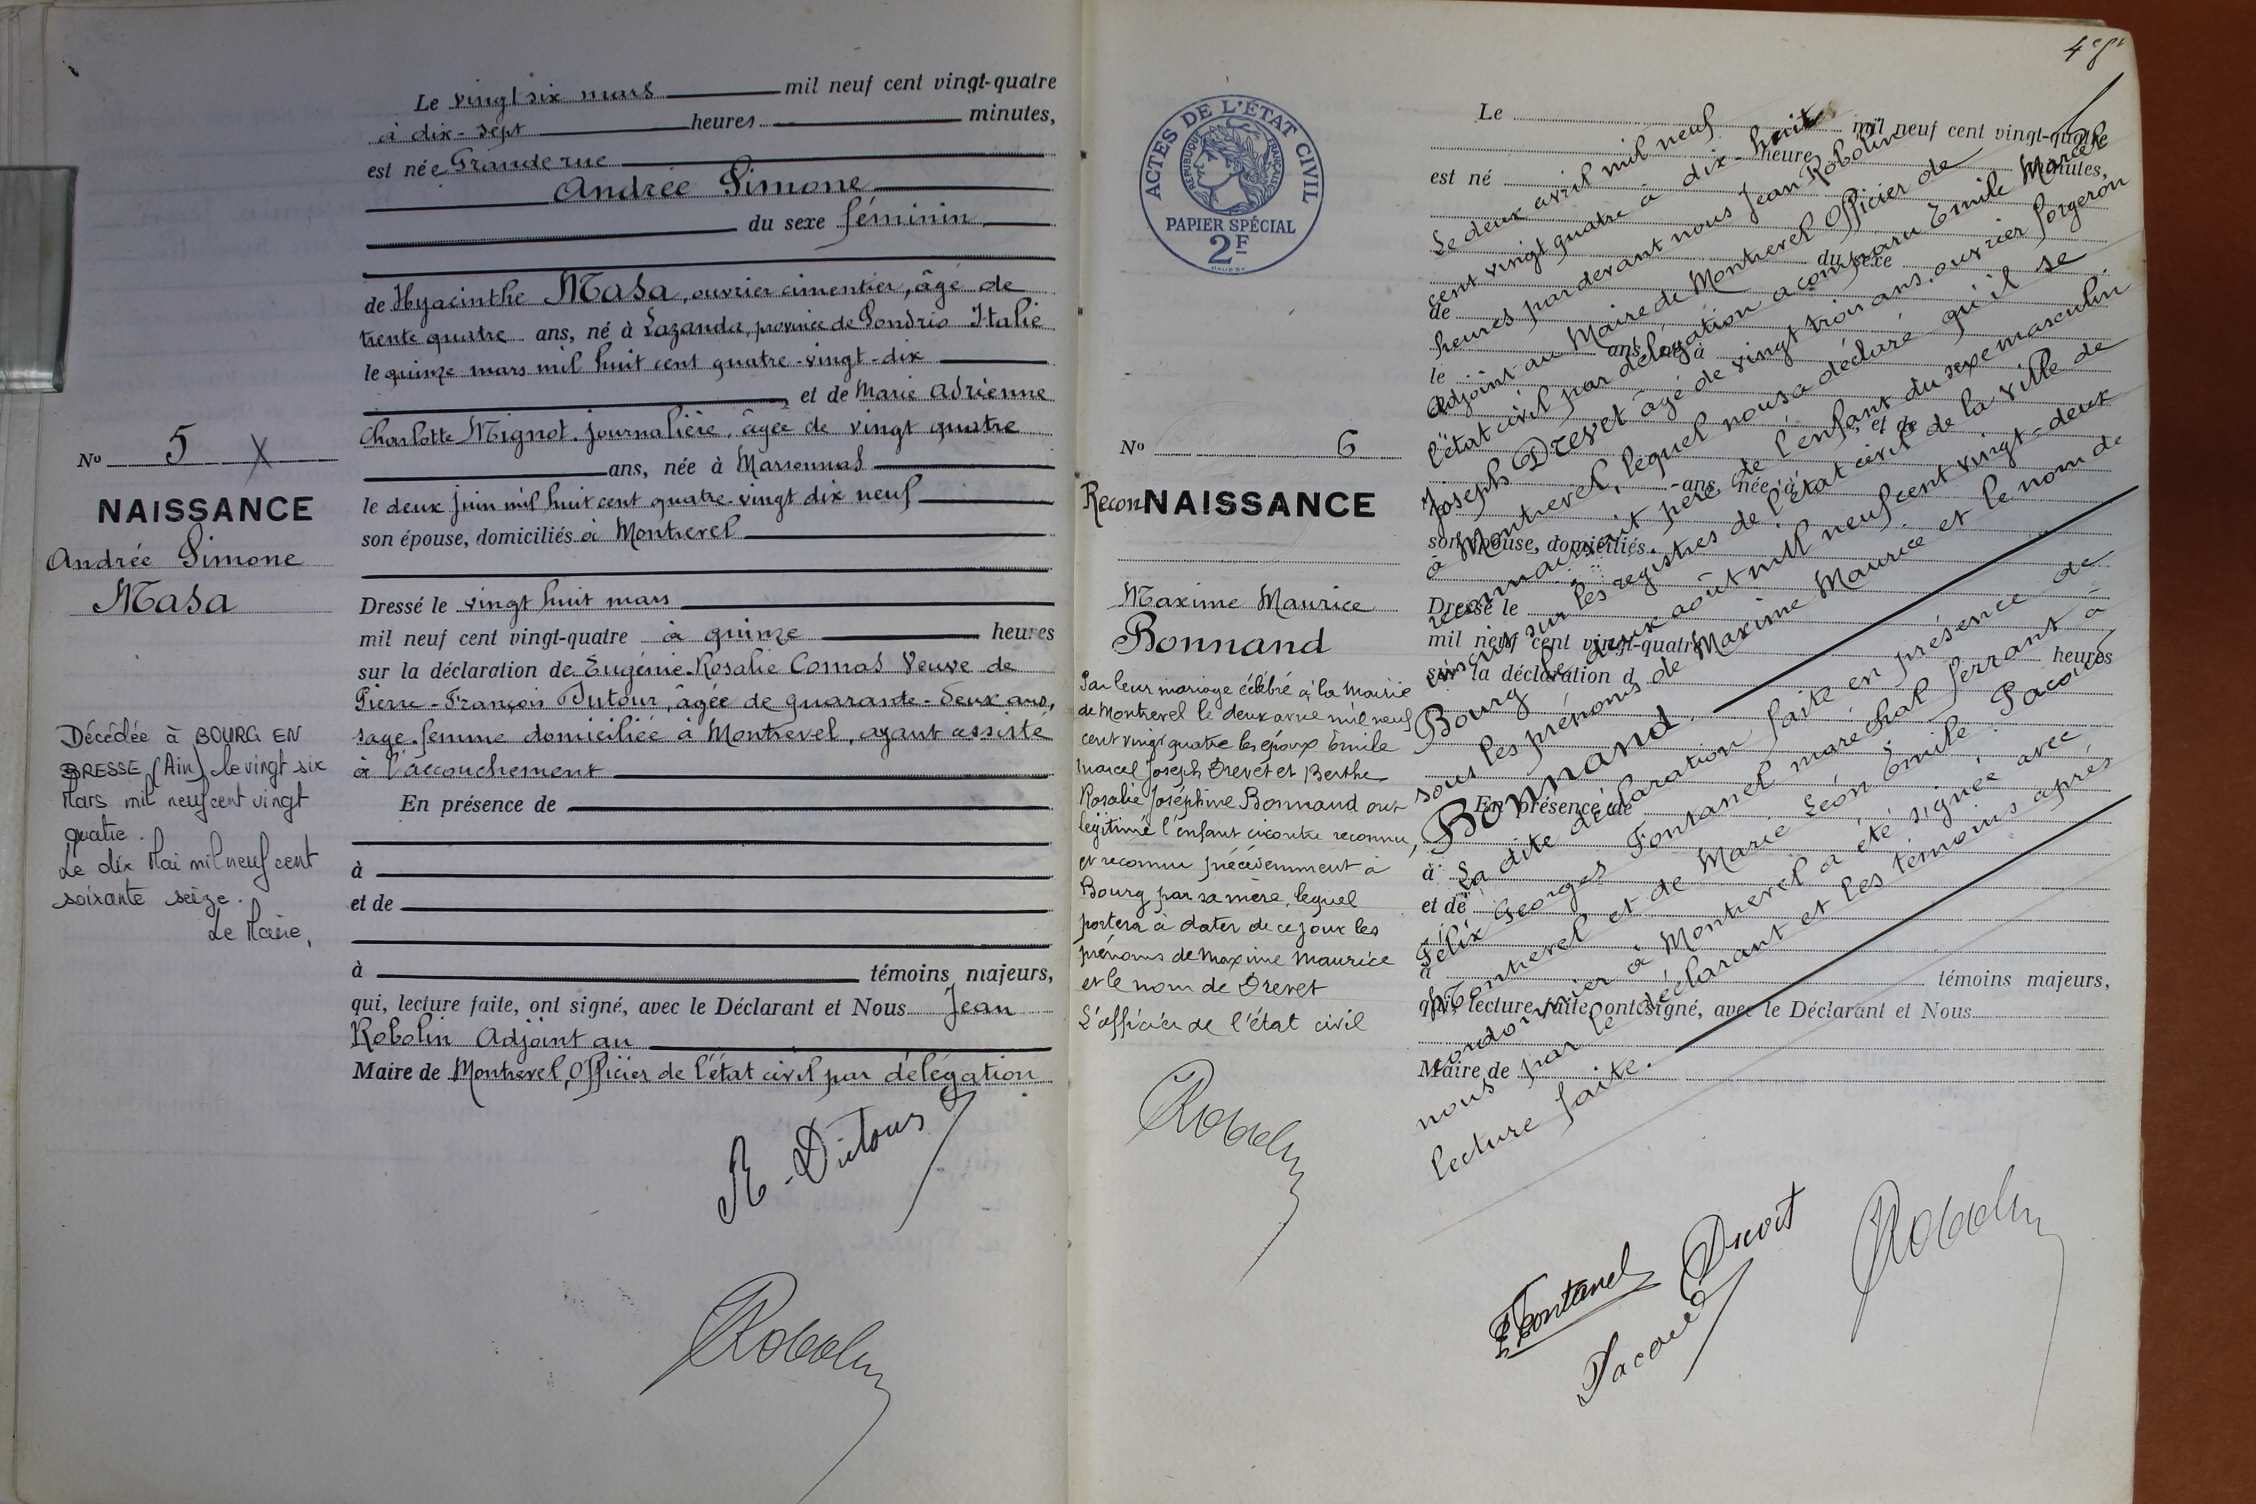 Le vingt six mars mil neuf cent vingt-quatre
à dix-sept heures minutes,
est née Grande rue
Andrée Simone
du sexe féminin
de Hyacinthe Masa, ouvrier cimentier, âgé de
trente quatre ans, né à Lazanda, province de Sondrio Italie
le quinze mars mil huit cent quatre-vingt-dix
et de Marie Adrienne
Charlotte Mignot. journalière, âgée de vingt quatre
ans, née à Marsonnas
le deux juin mil huit cent quatre-vingt dix neuf
son épouse, domiciliés à Montrevel
Dressé le vingt huit mars
mil neuf cent vingt-quatre à quinze heures
sur la déclaration de Eugénie Rosalie Comas Veuve de
Pierre-François Dutour, âgée de quarante-deux ans,
sage-femme domiciliée à Montrevel, ayant assisté
à l'accouchement
En présence de
à
et de
à témoins majeurs,
qui, lecture faite, ont signé, avec le Déclarant et Nous Jean
Robolin Adjoint au
Maire de Montrevel, Officier de l'état civil par délégation
R. Dutour
Robolin
No 5 X
NAISSANCE
Andrée Simone
Masa
Décédée à BOURG EN
BRESSE (Ain) le vingt six
Mars mil neuf cent vingt
quatre.
Le dix Mai mil neuf cent
soixante seize.
Le Maire,
ACTES DE L'ÉTAT CIVIL
RÉPUBLIQUE FRANÇAISE
PAPIER SPÉCIAL
2F
No 6
ReconNAISSANCE
Maxime Maurice
Bonnand
Par leur mariage célébré à la Mairie
de Montrevel le deux avril mil neuf
cent vingt quatre les époux Emile
Marcel Joseph Drevet et Berthe
Rosalie Joséphine Bonnand ont
légitimé l'enfant ci contre reconnu,
et reconnu précédemment à
Bourg par sa mère, lequel
portera à dater de ce jour les
prénoms de Maxime Maurice
et le nom de Drevet
L'officier de l'état civil
Robolin
Le mil neuf cent vingt-quatre
heures minutes,
est né
du sexe
de
ans, né à
le
et de
ans, née à
son épouse, domiciliés
Dressé le
mil neuf cent vingt-quatre heures
sur la déclaration d
En présence de
à
et de
à témoins majeurs,
qui, lecture faite, ont signé, avec le Déclarant et Nous
Maire de
Le deux avril mil neuf
cent vingt quatre à dix-huit
heures par devant nous Jean Robolin
Adjoint au Maire de Montrevel Officier de
l'état civil par délégation a comparu Emile Marcel
Joseph Drevet âgé de vingt trois ans, ouvrier forgeron
à Montrevel, lequel nous a déclaré qu'il se
reconnaissait père de l'enfant du sexe masculin
inscrit sur les registres de l'état civil de la ville de
Bourg le deux août mil neuf cent vingt-deux
sous les prénoms de Maxime Maurice et le nom de
Bonnand.
La dite déclaration faite en présence de
Félix Georges Fontanel maréchal ferrant à
Montrevel et de Marie Léon Emile Pacoud
cordonnier à Montrevel a été signée avec
nous par le déclarant et les témoins après
lecture faite.
Fontanel Drevet
Pacoud
Robolin